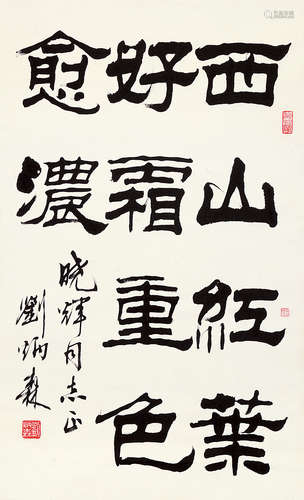 西山红葉
好霜重色
愈濃
晓輝同志正
劉炳森